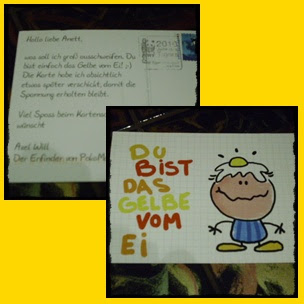 Hallo liebe Anett,
was soll ich groß ausschweifen. Du
bist einfach das Gelbe vom Ei! ;-)
Die Karte habe ich absichtlich
etwas später verschickt, damit die
Spannung erhalten bleibt.
Viel Spass beim
wünscht
Axel Will
Der Erfinder von
2010
DU
BIST
DAS
GELBE
VOM
Ei